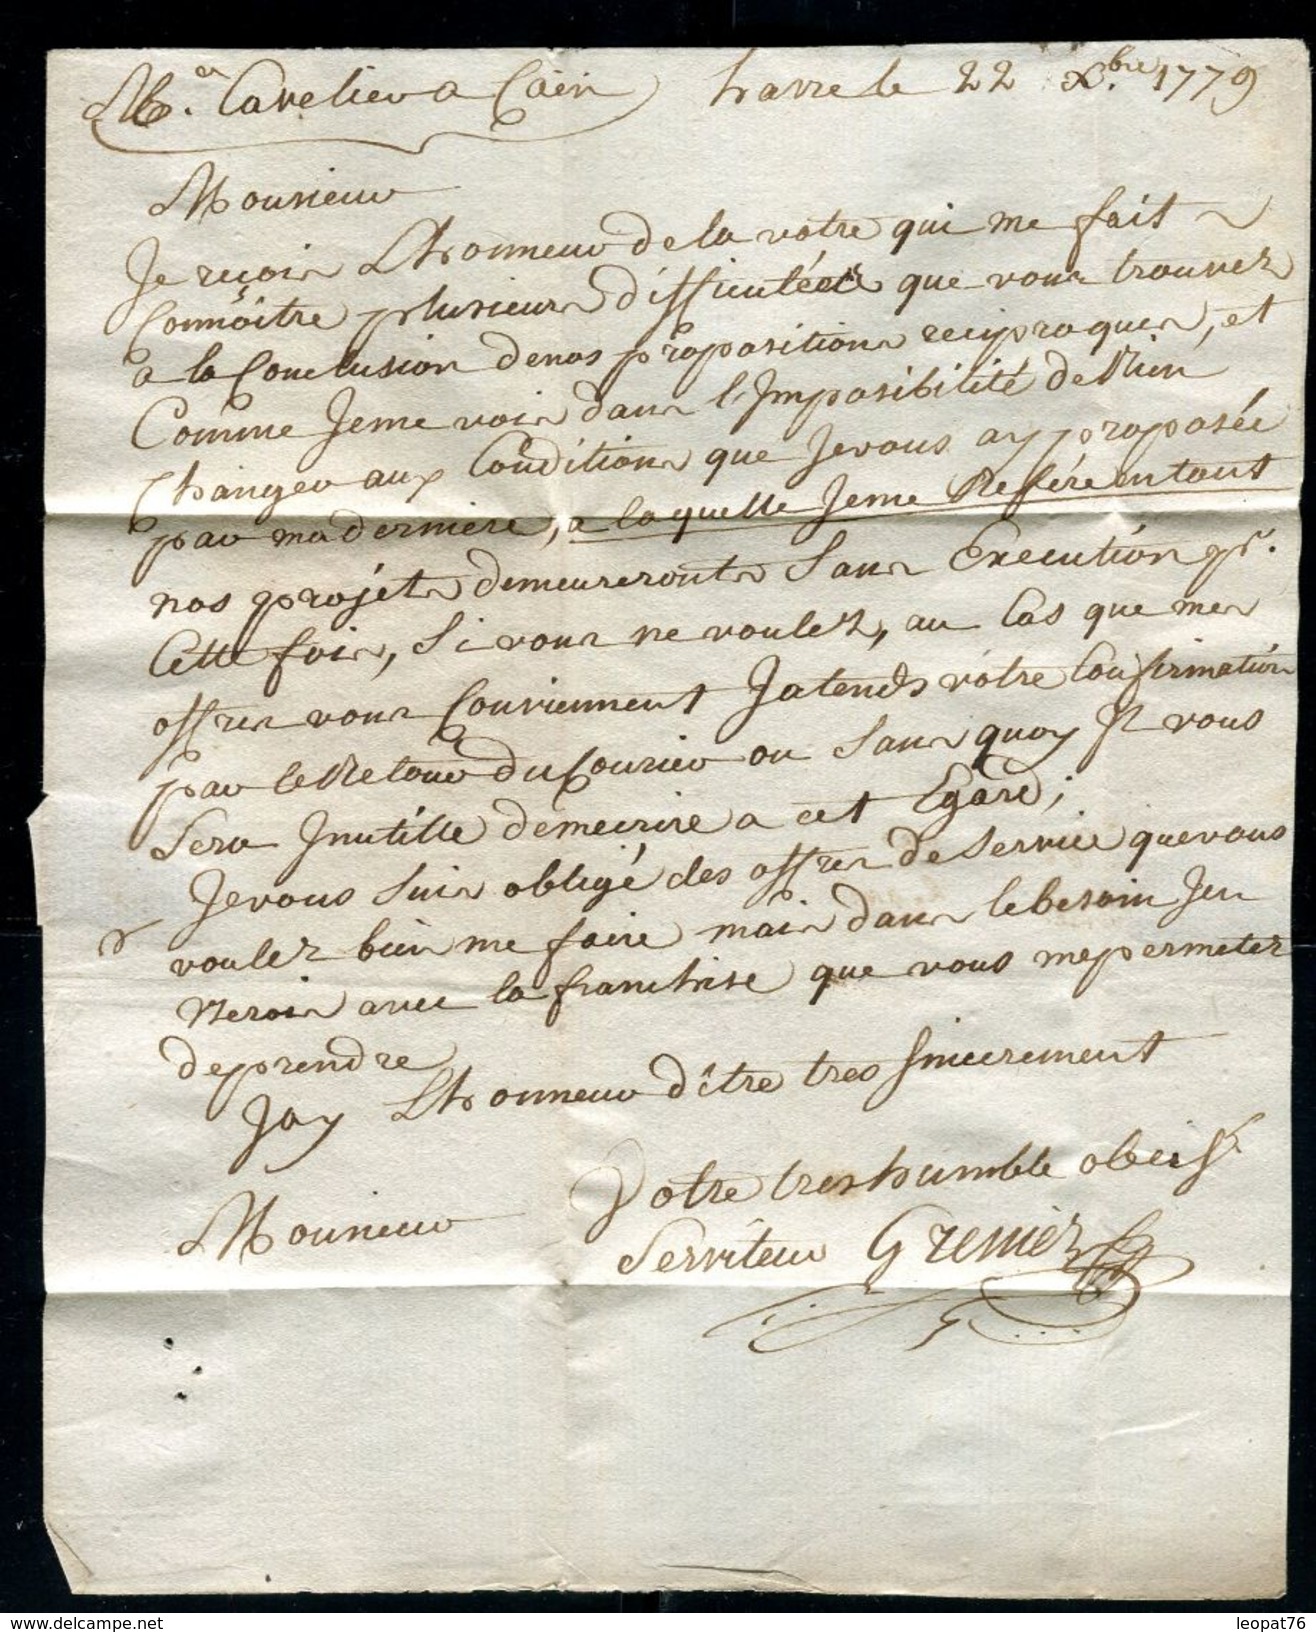 Mr. Cavelier a Caën havre le 22 Xbre. 1779
Monsieur
Je reçois Lhonneur de la votre qui me fait
Connoître plusieurs difficultées que vous trouvez
a la Conclusion de nos propositions reciproques, et
Comme Je me vois dans l'Imposibilité de Rien
Changer aux Conditions que Je vous ay proposée
par ma derniere, a laquelle Je me Réfère en tout
nos projets demeureronts Sans Execution pr.
Cette fois, Si vous ne voulez, au Cas que mes
offres vous Conviennent Jatends votre Confirmation
par le Retour du Courier ou Sans quoy Il vous
Sera Inutille de mecrire a cet Egard;
Je vous Suis obligé des offres de Service que vous
voulez bien me faire mais dans le besoin Jen
Userois avec la franchise que vous me permetez
de prendre
Jay Lhonneur d'être tres sincerement
Monsieur
Votre tres humble obeist.
Serviteur Grenier
leopat76
www.delcampe.net